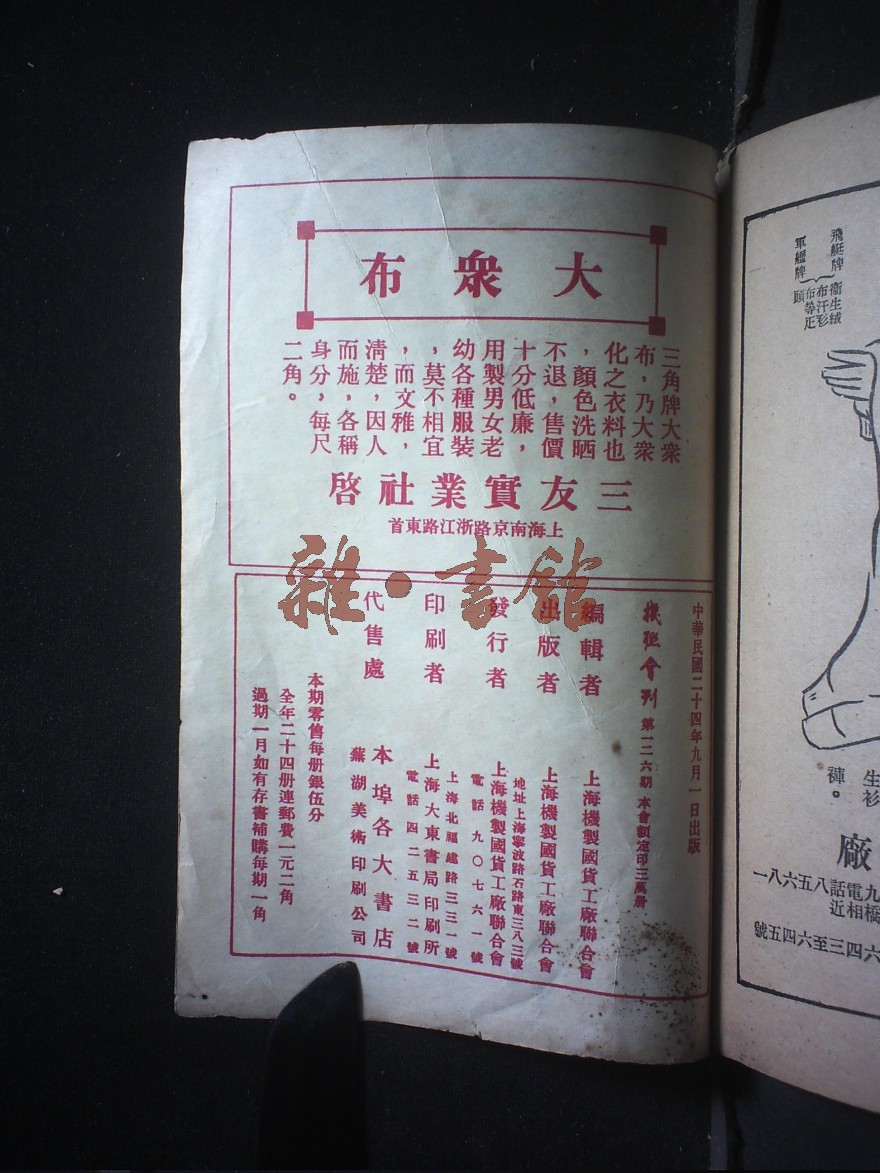 大衆布
三角牌大衆
布，乃大衆
化之衣料也
，顏色洗晒
不退，售價
十分低廉，
用製男女老
幼各種服裝
，莫不相宜
，而文雅，
清楚，因人
而施，各稱
身分，每尺
二角。
三友實業社啓
上海南京路浙江路東首
雜·書館
中華民國二十四年九月一日出版
機聯會刊 第一二六期 本會額定印三萬册
編輯者 上海機製國貨工廠聯合會
出版者 上海機製國貨工廠聯合會
地址上海寧波路石路東三八三號
發行者 上海機製國貨工廠聯合會
電話九〇七六一號
上海北福建路三三一號
印刷者 上海大東書局印刷所
電話四二五三二號
代售處 本埠各大書店
蕪湖美術印刷公司
本期零售每册銀伍分
全年二十四册連郵費一元二角
過期一月如有存書補購每期一角
飛艇牌
軍艦牌
衞生絨
布汗衫
布等疋
頭
生衫
褲。
廠
九電話八五六八一
橋相近
六四三至六四五號